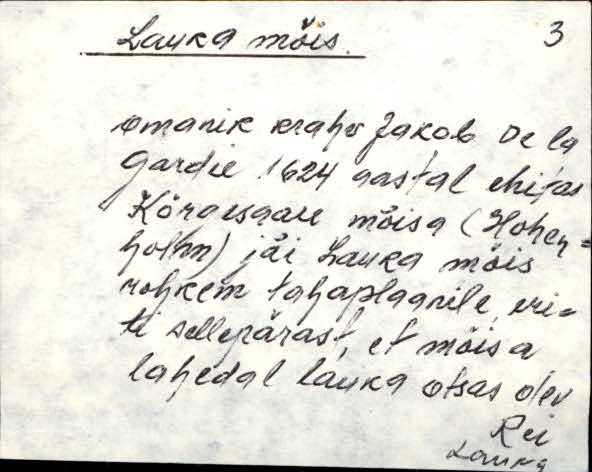 Lauka mõis. 3
omanik krahv Jakob De la
Gardie 1624 aastal ehitas
Kõrgesaare mõisa (Hohen=
holhn) jäi Lauka mõis
rohkem tahaplaanile, eri=
ti sellepärast, et mõisa
lahedal lauka otsas olev
Rei
Lauka